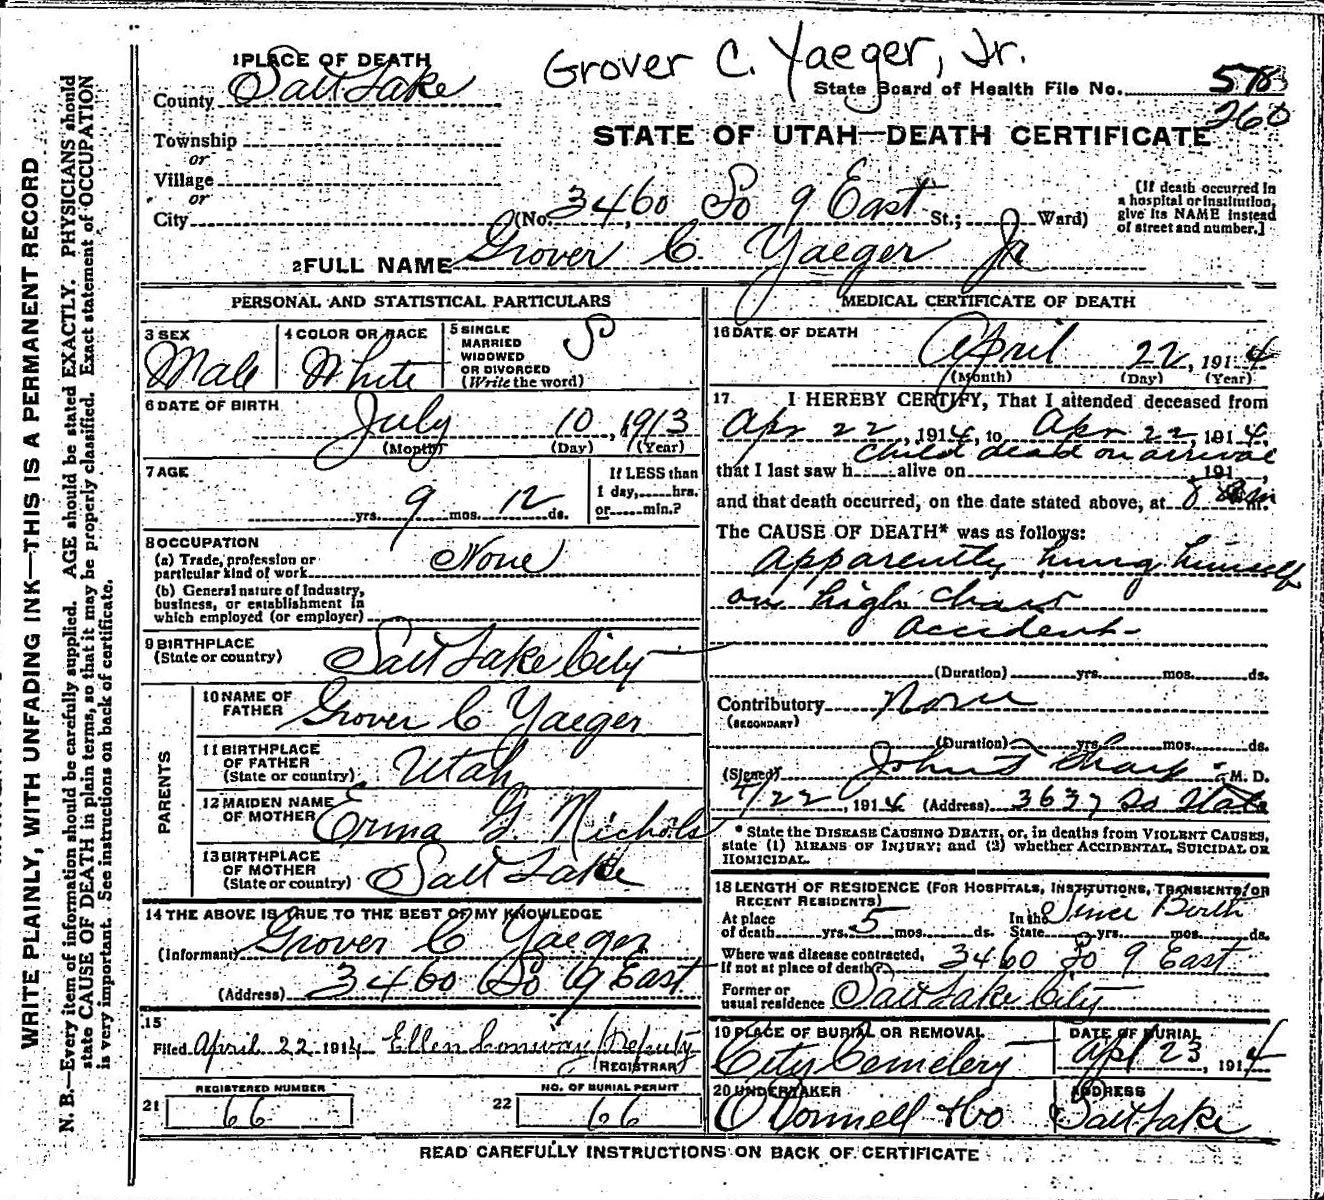 Grover C. Yaeger, Jr.
1 PLACE OF DEATH
County Salt Lake
State Board of Health File No. 578
260
Township
or
Village
or
City
STATE OF UTAH—DEATH CERTIFICATE
(No. 3460 So 9 East St.; Ward)
[If death occurred in
a hospital or institution,
give its NAME instead
of street and number.]
2 FULL NAME Grover C. Yaeger Jr
PERSONAL AND STATISTICAL PARTICULARS
3 SEX
Male
4 COLOR OR RACE
White
5 SINGLE
MARRIED
WIDOWED
OR DIVORCED
(Write the word)
S
6 DATE OF BIRTH
July 10, 1913
(Month) (Day) (Year)
7 AGE
yrs. 9 mos. 12 ds.
If LESS than
1 day, hrs.
or min.?
8 OCCUPATION
(a) Trade, profession or
particular kind of work None
(b) General nature of Industry,
business, or establishment in
which employed (or employer)
9 BIRTHPLACE
(State or country) Salt Lake City
PARENTS
10 NAME OF
FATHER Grover C Yaeger
11 BIRTHPLACE
OF FATHER
(State or country) Utah
12 MAIDEN NAME
OF MOTHER Erma G. Nichols
13 BIRTHPLACE
OF MOTHER
(State or country) Salt Lake
14 THE ABOVE IS TRUE TO THE BEST OF MY KNOWLEDGE
(Informant) Grover C Yaeger
(Address) 3460 So 9 East
15
Filed April 22 1914 Ellen Conway / Deputy
(REGISTRAR)
REGISTERED NUMBER
21 66
NO. OF BURIAL PERMIT
22 66
MEDICAL CERTIFICATE OF DEATH
16 DATE OF DEATH
April 22, 1914
(Month) (Day) (Year)
17. I HEREBY CERTIFY, That I attended deceased from
Apr 22, 1914, to Apr 22, 1914,
child dead on arrival
that I last saw h alive on 191 ,
and that death occurred, on the date stated above, at 8 m.
The CAUSE OF DEATH* was as follows:
apparently hung himself
on high chair
accident
(Duration) yrs. mos. ds.
Contributory None
(SECONDARY)
(Duration) yrs. mos. ds.
(Signed) John T Sharp M. D.
4/22, 1914 (Address) 3637 So State
* State the DISEASE CAUSING DEATH, or, in deaths from VIOLENT CAUSES,
state (1) MEANS OF INJURY; and (2) whether ACCIDENTAL, SUICIDAL OR
HOMICIDAL.
18 LENGTH OF RESIDENCE (FOR HOSPITALS, INSTITUTIONS, TRANSIENTS, OR
RECENT RESIDENTS)
At place
of death yrs. 5 mos. ds.
In the
State Since Birth yrs. mos. ds.
Where was disease contracted,
if not at place of death? 3460 So 9 East
Former or
usual residence Salt Lake City
19 PLACE OF BURIAL OR REMOVAL
City Cemetery
DATE OF BURIAL
Apl 23, 1914
20 UNDERTAKER
O'Donnell & Co
ADDRESS
Salt Lake
READ CAREFULLY INSTRUCTIONS ON BACK OF CERTIFICATE
WRITE PLAINLY, WITH UNFADING INK—THIS IS A PERMANENT RECORD
N. B.—Every item of information should be carefully supplied. AGE should be stated EXACTLY. PHYSICIANS should
state CAUSE OF DEATH in plain terms, so that it may be properly classified. Exact statement of OCCUPATION
is very important. See instructions on back of certificate.